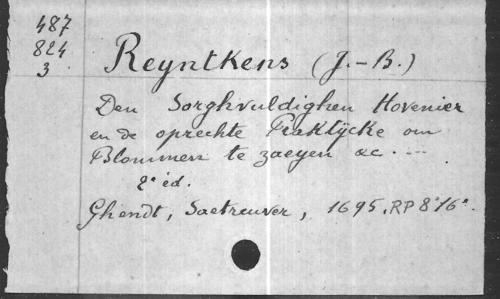 487
824
3
Reyntkens (J.-B.)
Den Sorghvuldighen Hovenier
en de oprechte Praktijcke om
Blommen te zaeyen &c. ---
2e éd.
Ghendt, Saetreuver, 1695. RP 8°16°.